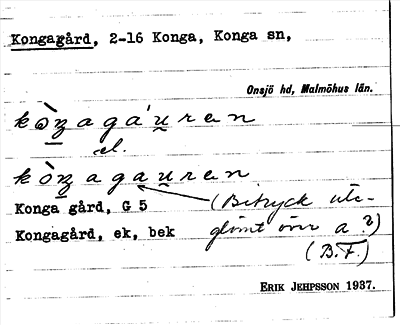 Kongagård, 2-16 Konga, Konga sn,
Onsjö hd, Malmöhus län.
el.
Konga gård, G 5 (Bitryck ute-
Kongagård, ek, bek glömt över a ?)
(B.F.)
ERIK JEHPSSON 1937.